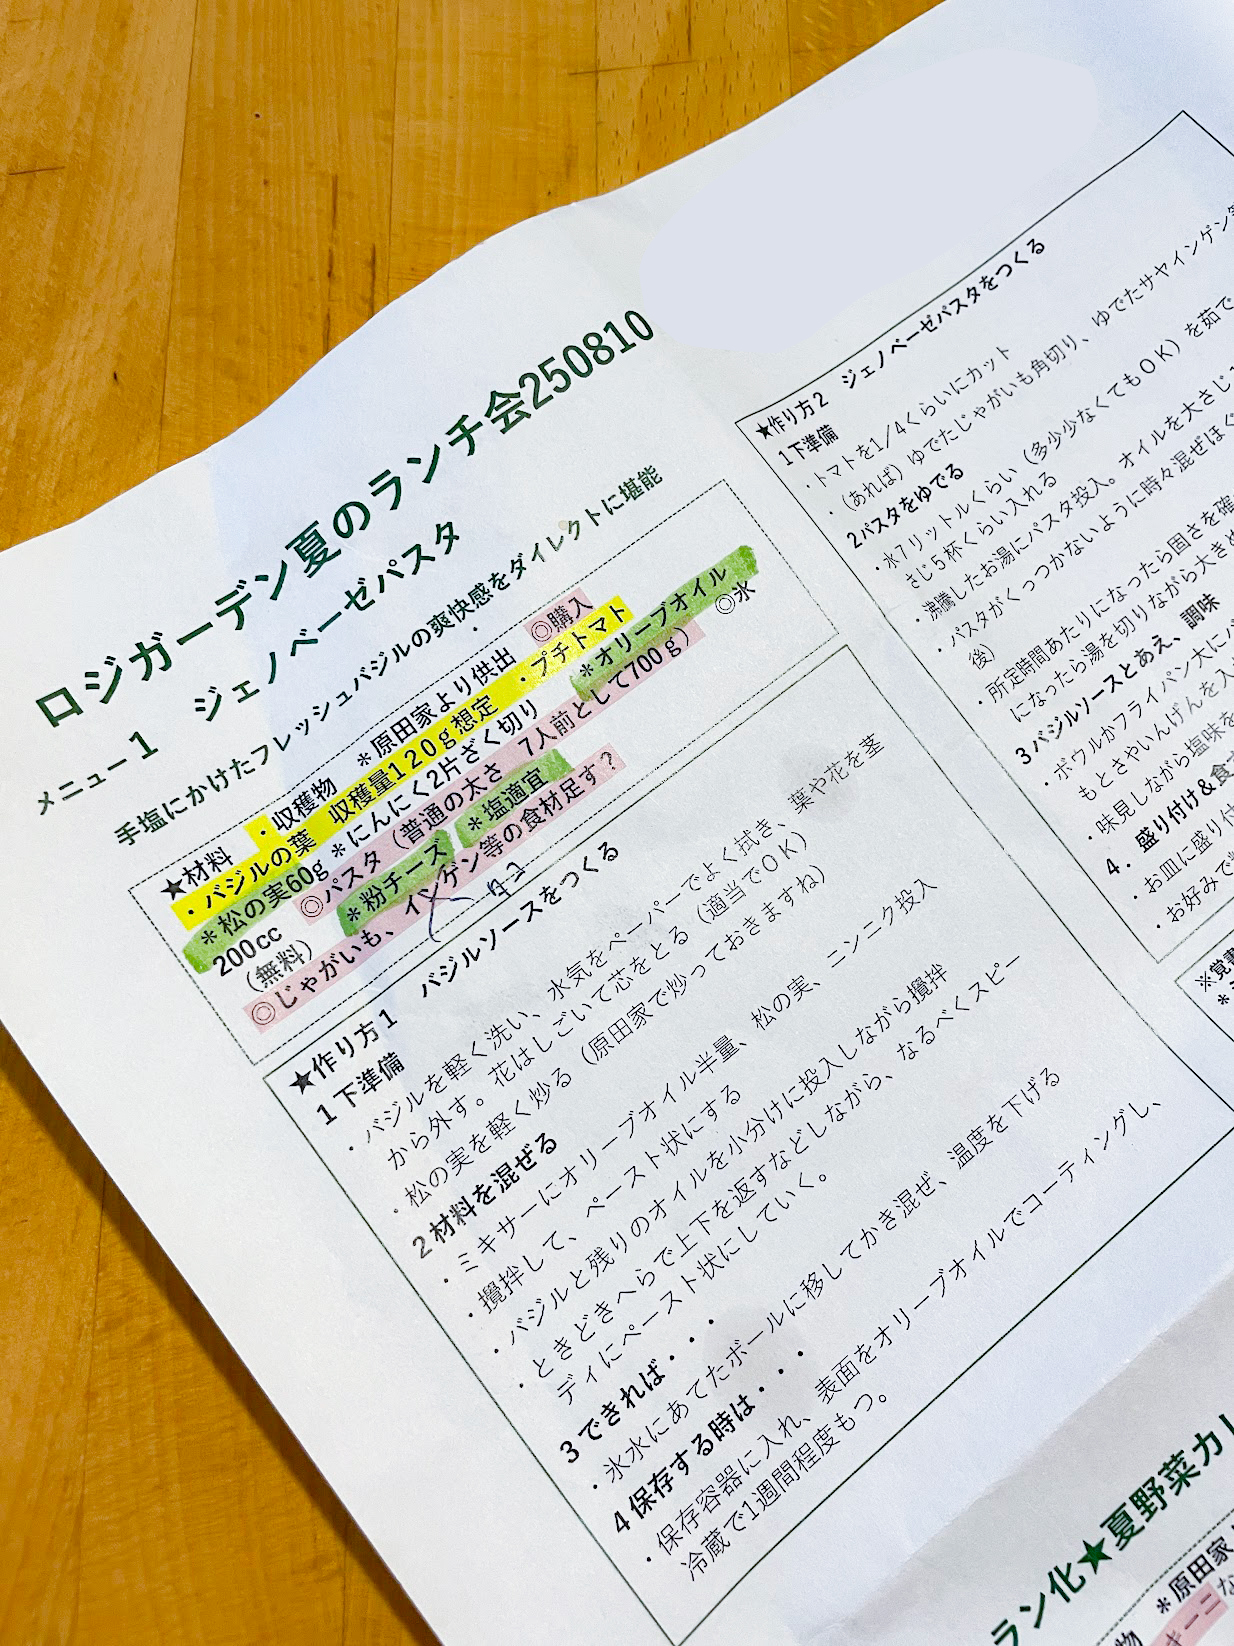 ロジガーデン夏のランチ会250810
メニュー１　ジェノベーゼパスタ
手塩にかけたフレッシュバジルの爽快感をダイレクトに堪能
★材料　・収穫物　＊原田家より供出　◎購入
・バジルの葉　収穫量１２０ｇ想定　・プチトマト
＊松の実60g ＊にんにく2片ざく切り　＊オリーブオイル
200cc　◎パスタ（普通の太さ　7人前として700ｇ）　◎氷
（無料）　＊粉チーズ　＊塩適宜
◎じゃがいも、インゲン等の食材足す？
★作り方１　バジルソースをつくる
１下準備
・バジルを軽く洗い、水気をペーパーでよく拭き、葉や花を茎
から外す。花はしごいて芯をとる（適当でＯＫ）
・松の実を軽く炒る（原田家で炒っておきますね）
２材料を混ぜる
・ミキサーにオリーブオイル半量、松の実、ニンニク投入
・攪拌して、ペースト状にする
・バジルと残りのオイルを小分けに投入しながら攪拌
・ときどきへらで上下を返すなどしながら、なるべくスピー
ディにペースト状にしていく。
３できれば・・・
・氷水にあてたボールに移してかき混ぜ、温度を下げる
４保存する時は・・・
・保存容器に入れ、表面をオリーブオイルでコーティングし、
冷蔵で1週間程度もつ。
★作り方２　ジェノベーゼパスタをつくる
１下準備
・トマトを1/4くらいにカット
・（あれば）ゆでたじゃがいも角切り、ゆでたサヤインゲン
２パスタをゆでる
・水７リットルくらい（多少少なくてもＯＫ）を茹で
さじ５杯くらい入れる
・沸騰したお湯にパスタ投入。オイルを大さじ
・パスタがくっつかないように時々混ぜほぐ
後）
・所定時間あたりになったら固さを確
になったら湯を切りながら大きめ
３バジルソースとあえ、調味
・ボウルかフライパン大にバ
もとさやいんげんを入
・味見しながら塩味を
４．盛り付け＆食
・お皿に盛り付
・お好みで
※覚書
ラン化★夏野菜カレ
物　＊原田家